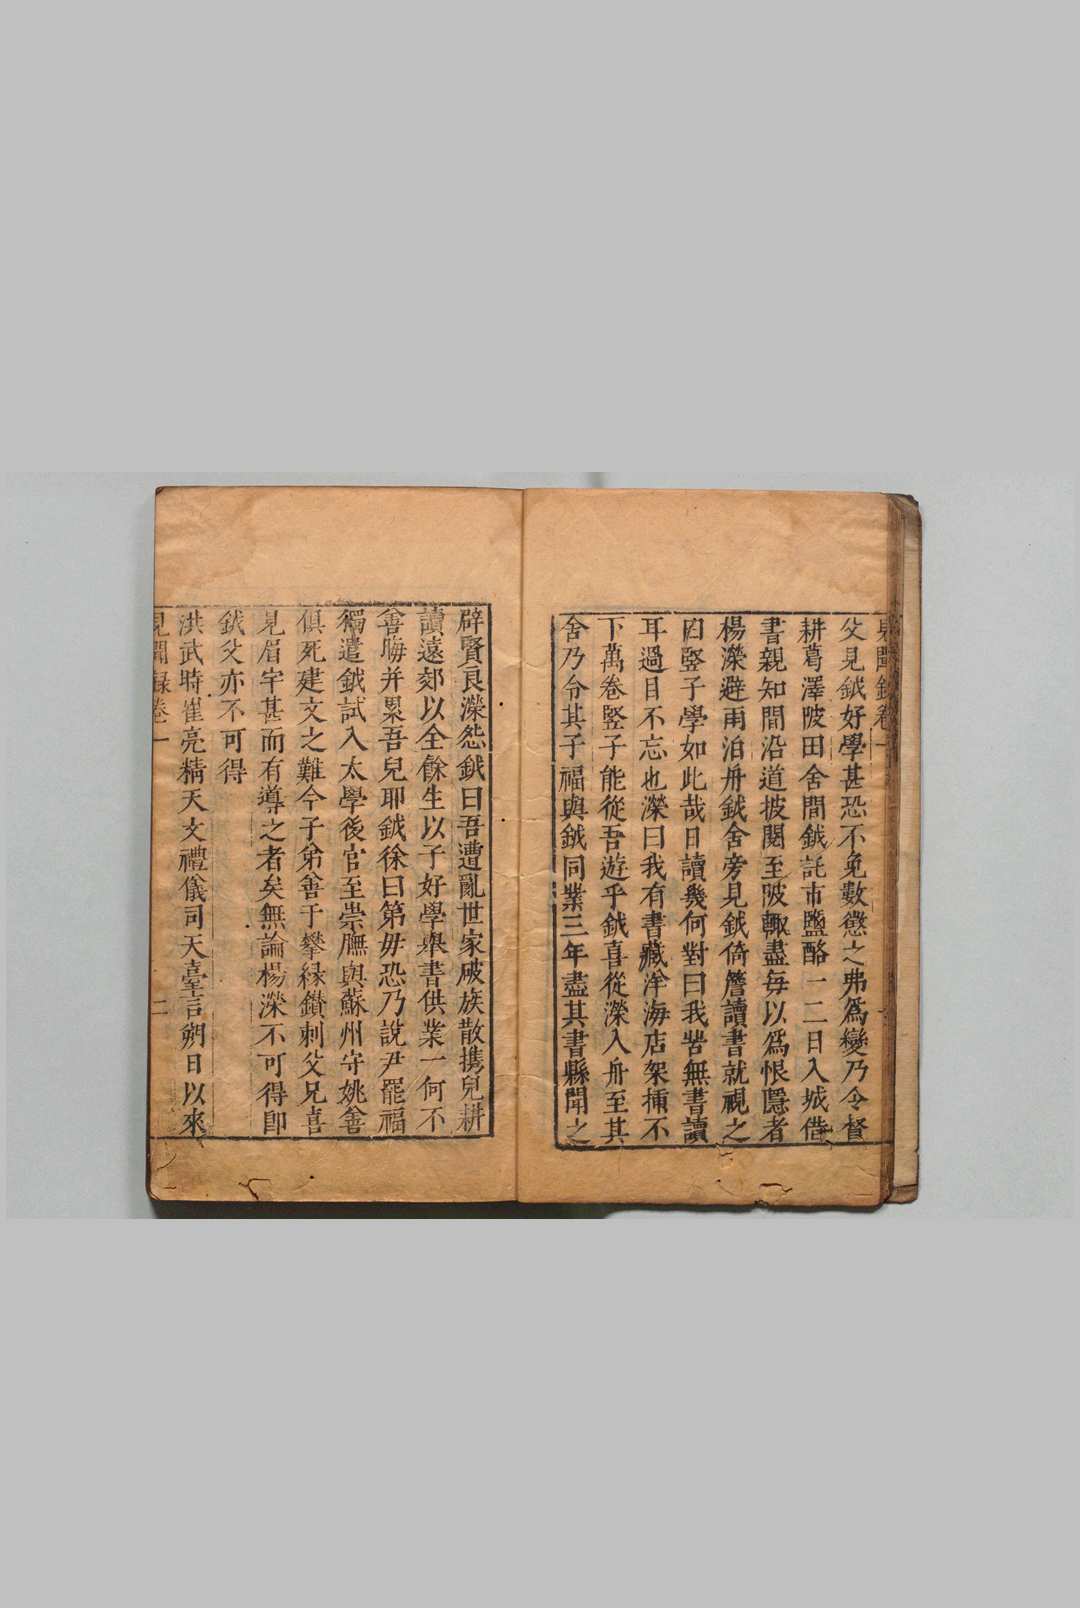 見聞錄卷一
父見鉞好學甚恐不免數懲之弗為變乃令督
耕葛澤陂田舍間鉞託市鹽酪一二日入城借
書親知間沿道披閱至陂輙盡每以為恨隱者
楊濚避雨泊舟鉞舍旁見鉞倚簷讀書就視之
曰豎子學如此哉日讀幾何對曰我苦無書讀
耳過目不忘也濚曰我有書藏洋海店架揷不
下萬卷竪子能從吾遊乎鉞喜從濚入舟至其
舍乃令其子福與鉞同業三年盡其書縣聞之
辟賢良濚怨鉞曰吾遭亂世家破族散携兒耕
讀遠郊以全餘生以子好學舉書供業一何不
善晦并累吾兒耶鉞徐曰第毋恐乃說尹罷福
獨遣鉞試入太學後官至崇膴與蘇州守姚善
俱死建文之難今子弟善于攀緣鑚刺父兄喜
見眉宇甚而有導之者矣無論楊濚不可得即
鉞父亦不可得
洪武時崔亮精天文禮儀司天臺言朔日以來
見聞錄卷一
二